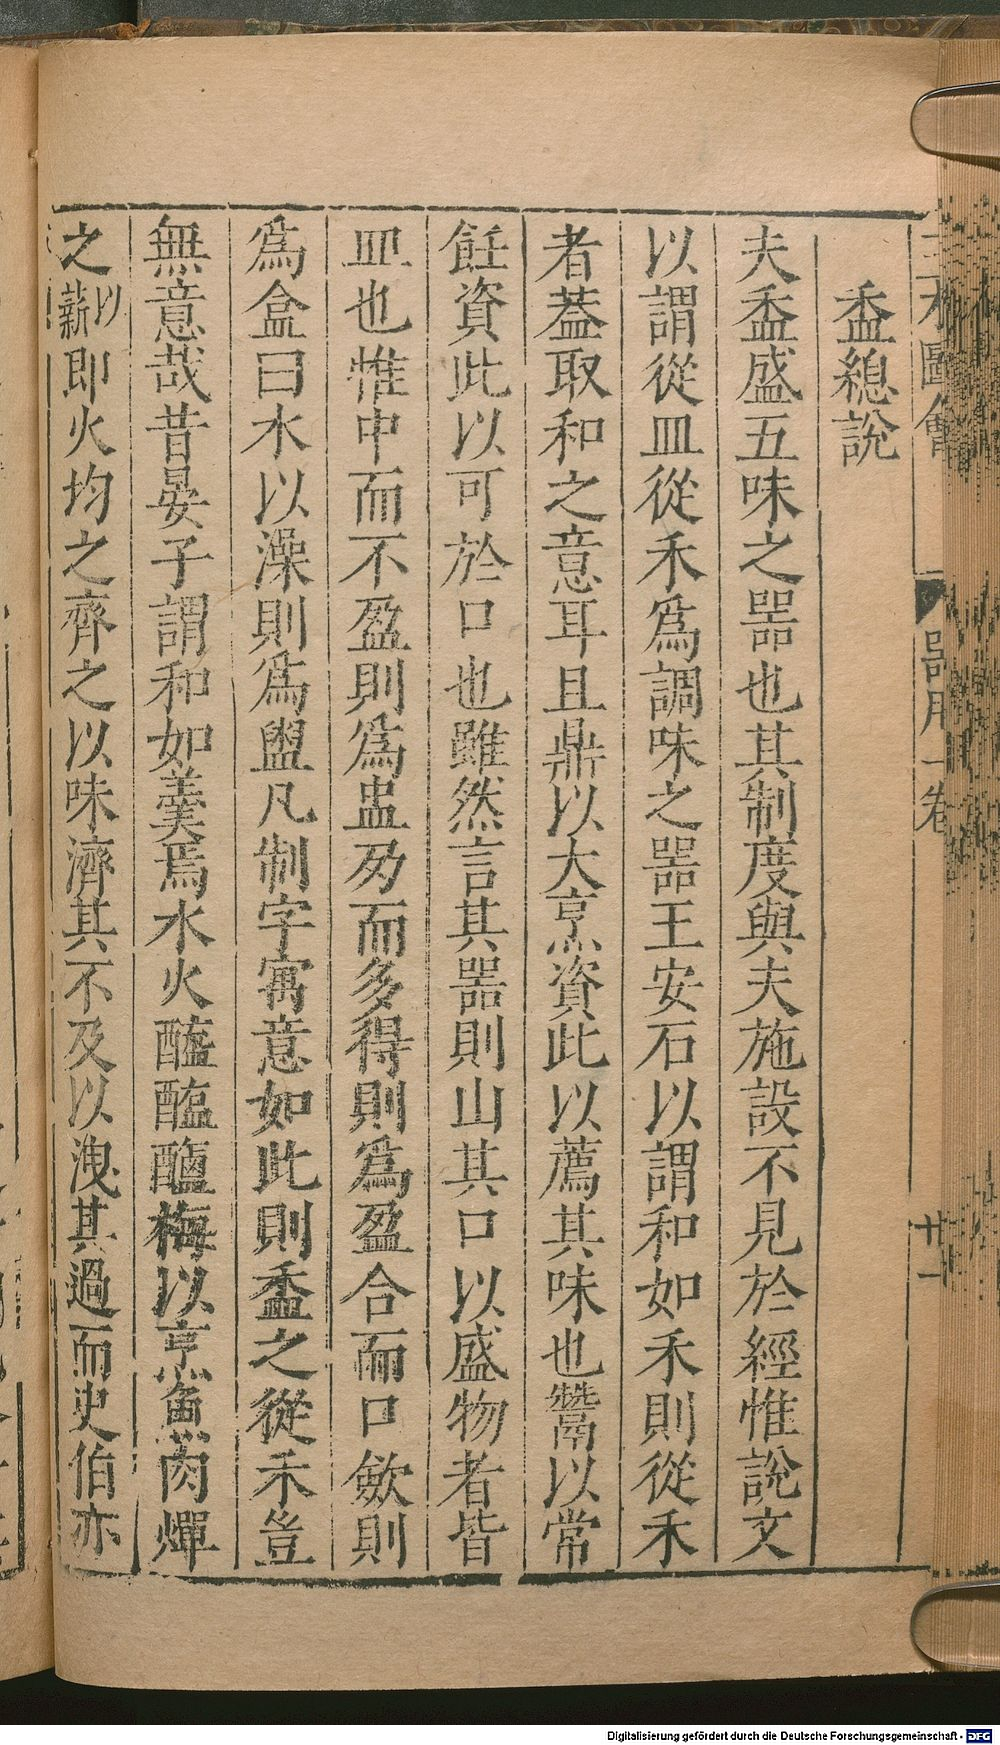 三才圖會 器用一卷 廿一
盉總說
夫盉盛五味之器也其制度與夫施設不見於經惟說文
以謂從皿從禾爲調味之器王安石以謂和如禾則從禾
者蓋取和之意耳且鼎以大烹資此以薦其味也鬵以常
飪資此以可於口也雖然言其器則山其口以盛物者皆
皿也惟中而不盈則爲盅夃而多得則爲盈合而口歛則
爲盒曰水以澡則爲盥凡制字寓意如此則盉之從禾豈
無意哉昔晏子謂和如羹焉水火醯醢鹽梅以烹魚肉燀
之以薪即火均之齊之以味濟其不及以洩其過而史伯亦
Digitalisierung gefördert durch die Deutsche Forschungsgemeinschaft - DFG